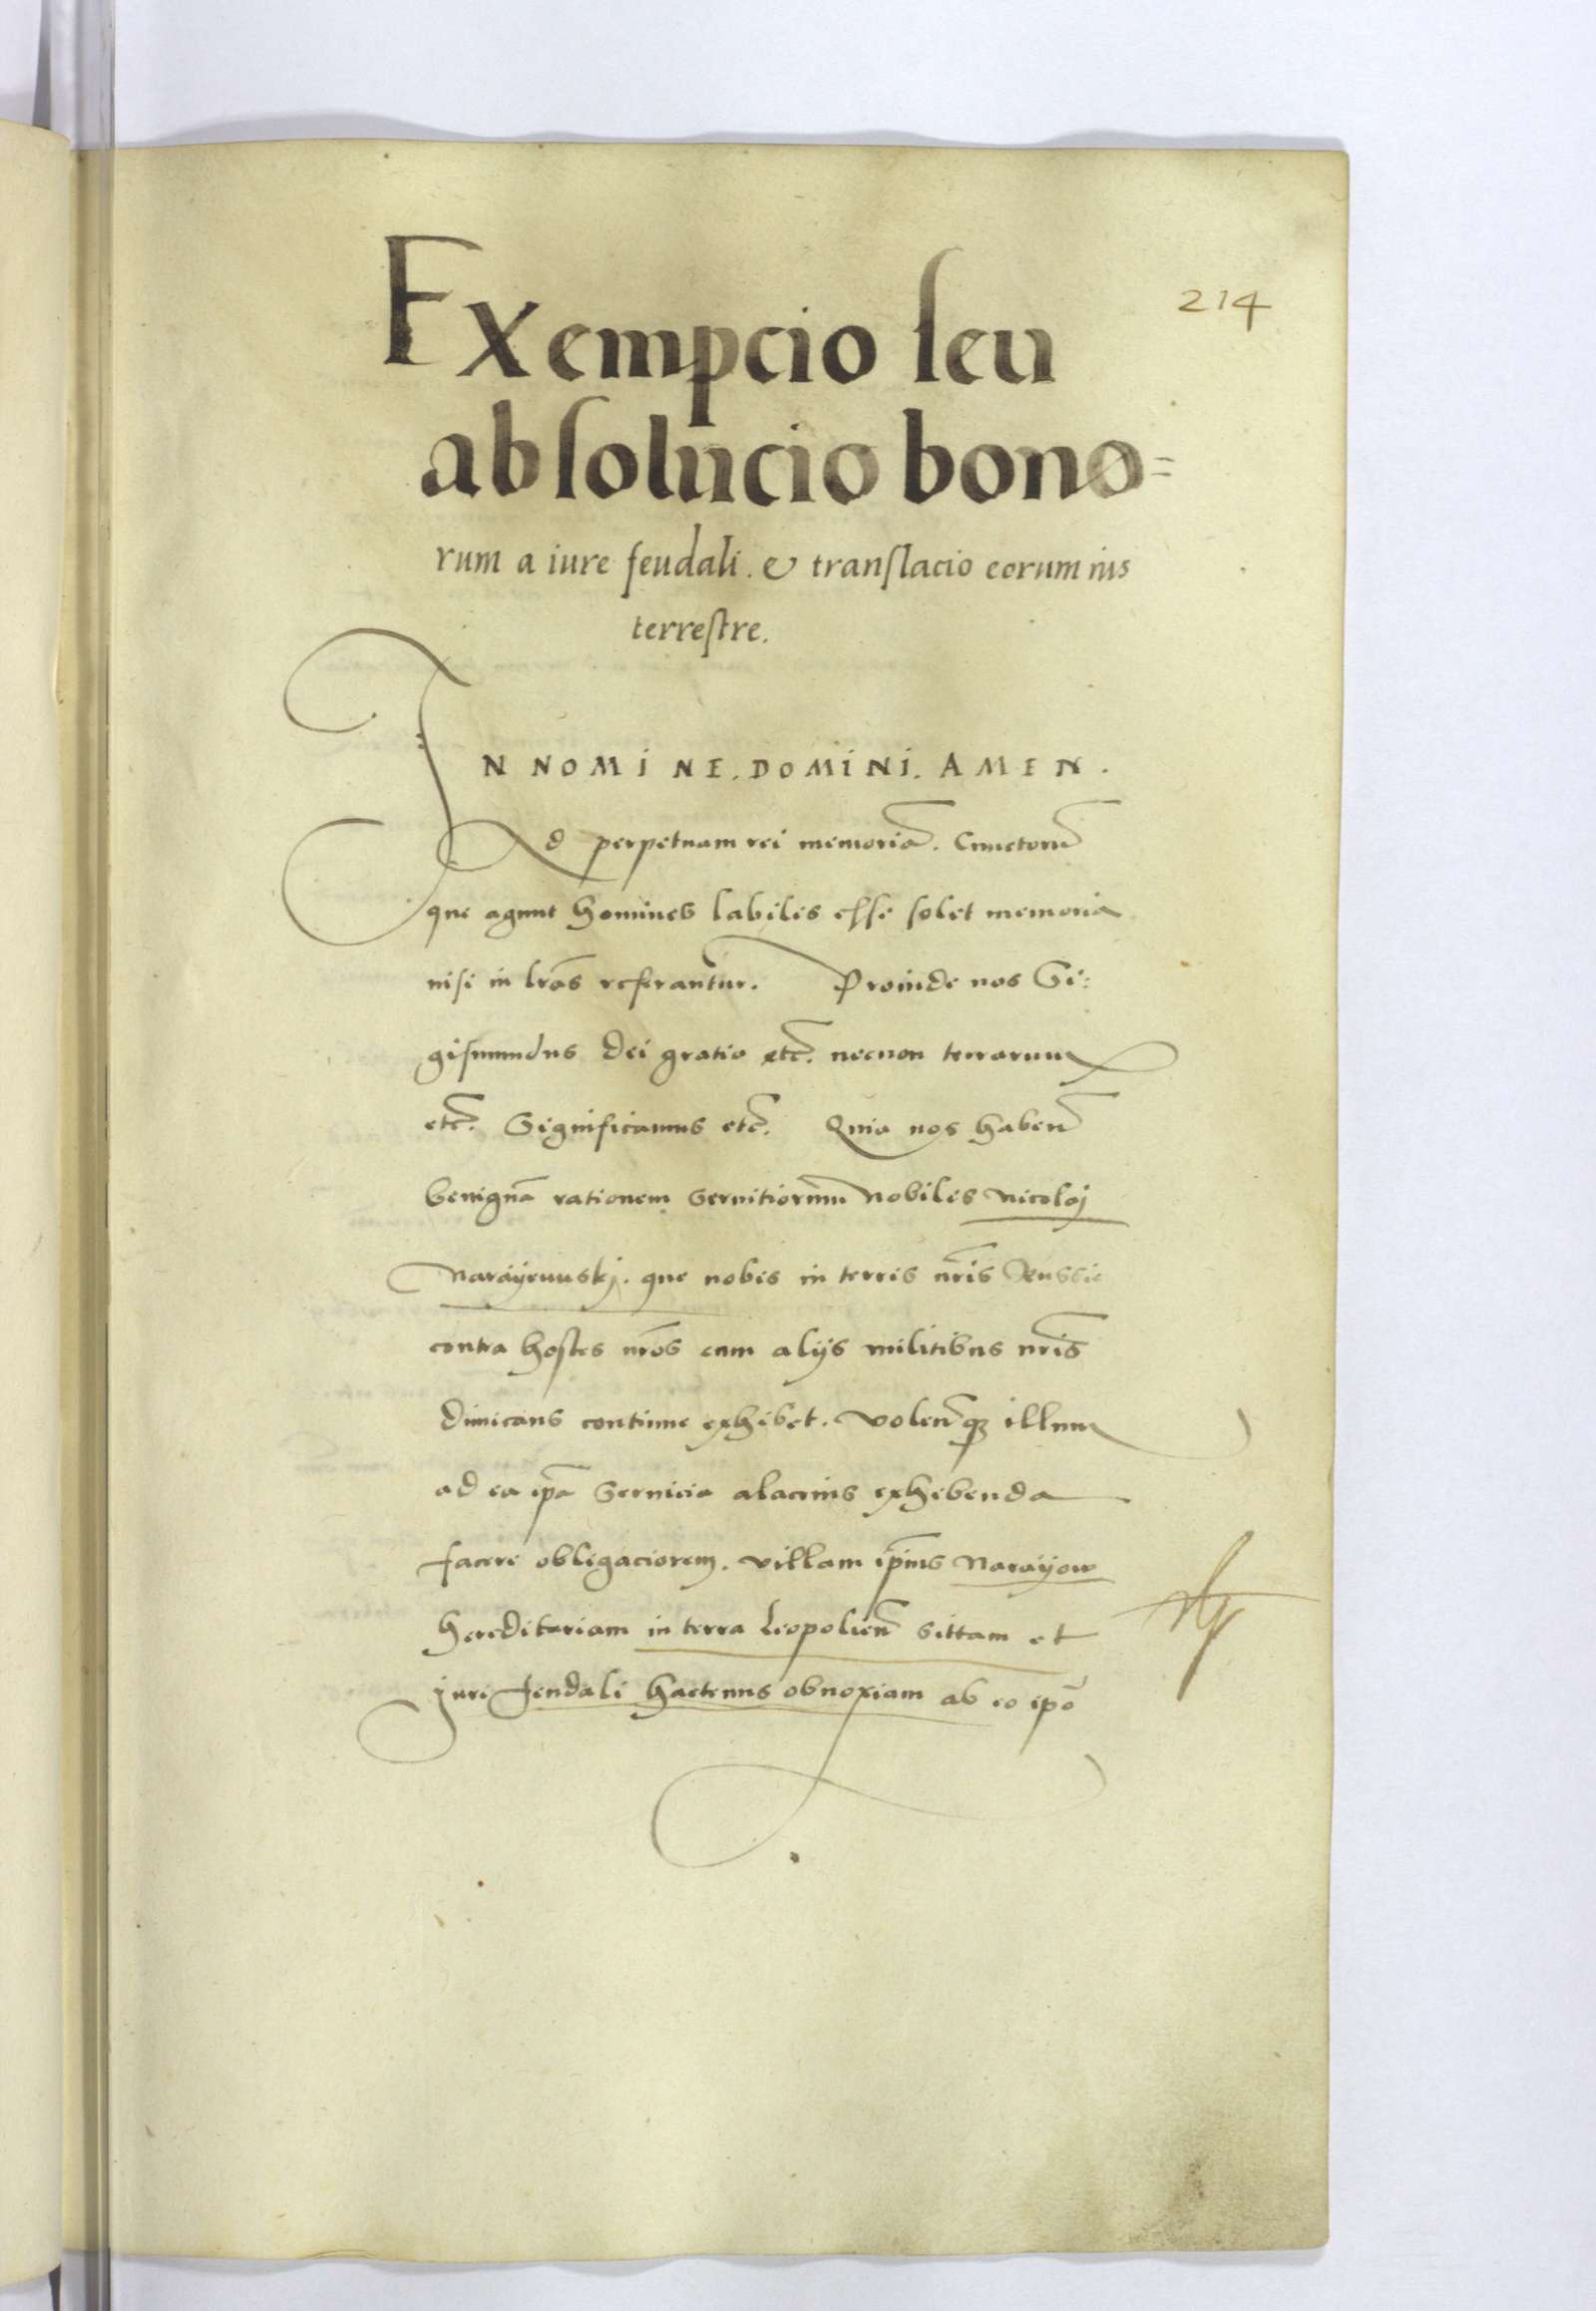 214
Exempcio seu
absolucio bono=
rum a iure feudali. & translacio eorum ius
terrestre.
IN NOMINE. DOMINI. AMEN.
Ad perpetuam rei memoriã. Cunctorũ
que agunt homines labiles esse solet memoria
nisi in lr̃as referantur. Proinde nos Si:
gismundus dei gratia etc̃. necnon terrarum
etc̃. Significamus etc̃. Quia nos habeñ
benignã rationem servitiorum Nobilis Nicolaj
Narayewskj. que nobis in terris nr̃is Russie
contra hostes nr̃os cum alijs militibus nr̃is
dimicans continue exhibet. volen̄qȝ illum
ad ea ip̃a servicia alacrius exhibenda
facere obligaciorem. villam ip̃ius Narayow
hereditariam in terra Leopolieñ sittam et
jure feudali hactenus obnoxiam ab eo ip̃o